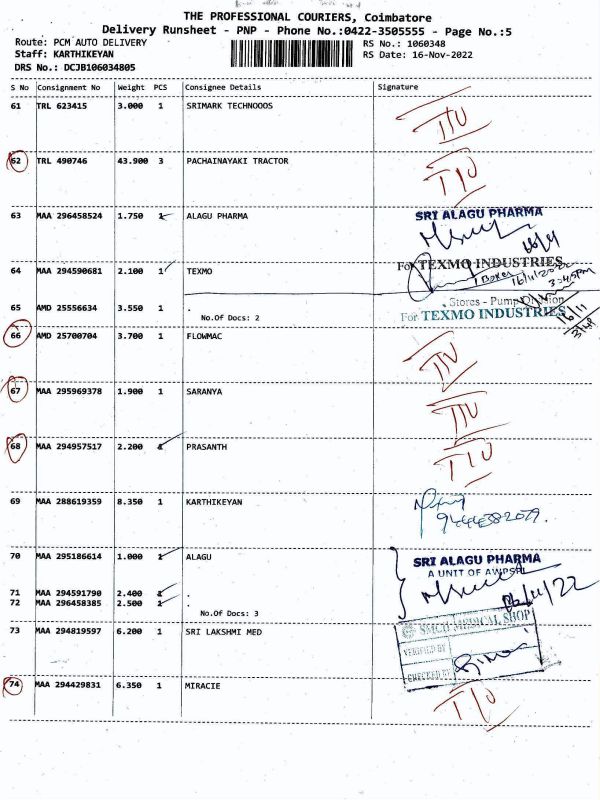 THE PROFESSIONAL COURIERS, Coimbatore
Delivery Runsheet - PNP - Phone No.:0422-3505555 - Page No.:5
Route: PCM AUTO DELIVERY RS No.: 1060348
Staff: KARTHIKEYAN RS Date: 16-Nov-2022
DRS No.: DCJB106034805
S No Consignment No Weight PCS Consignee Details Signature
61 TRL 623415 3.000 1 SRIMARK TECHNOOOS
62 TRL 490746 43.900 3 PACHAINAYAKI TRACTOR
63 MAA 296458524 1.750 1 ALAGU PHARMA SRI ALAGU PHARMA
64 MAA 294590681 2.100 1 TEXMO For TEXMO INDUSTRIES
16/11/2022
3:45pm
65 AMD 25556634 3.550 1 . Stores - Pump Division
No.Of Docs: 2 For TEXMO INDUSTRIES
16/11
66 AMD 25700704 3.700 1 FLOWMAC
67 MAA 295969378 1.900 1 SARANYA
68 MAA 294957517 2.200 1 PRASANTH
69 MAA 288619359 8.350 1 KARTHIKEYAN
70 MAA 295186614 1.000 1 ALAGU SRI ALAGU PHARMA
A UNIT OF AWPSPL
71 MAA 294591790 2.400 1 .
72 MAA 296458385 2.500 1 .
No.Of Docs: 3
16/11/22
SMCH MEDICAL SHOP
73 MAA 294819597 6.200 1 SRI LAKSHMI MED
VERIFIED BY
CHECKED BY
74 MAA 294429831 6.350 1 MIRACIE